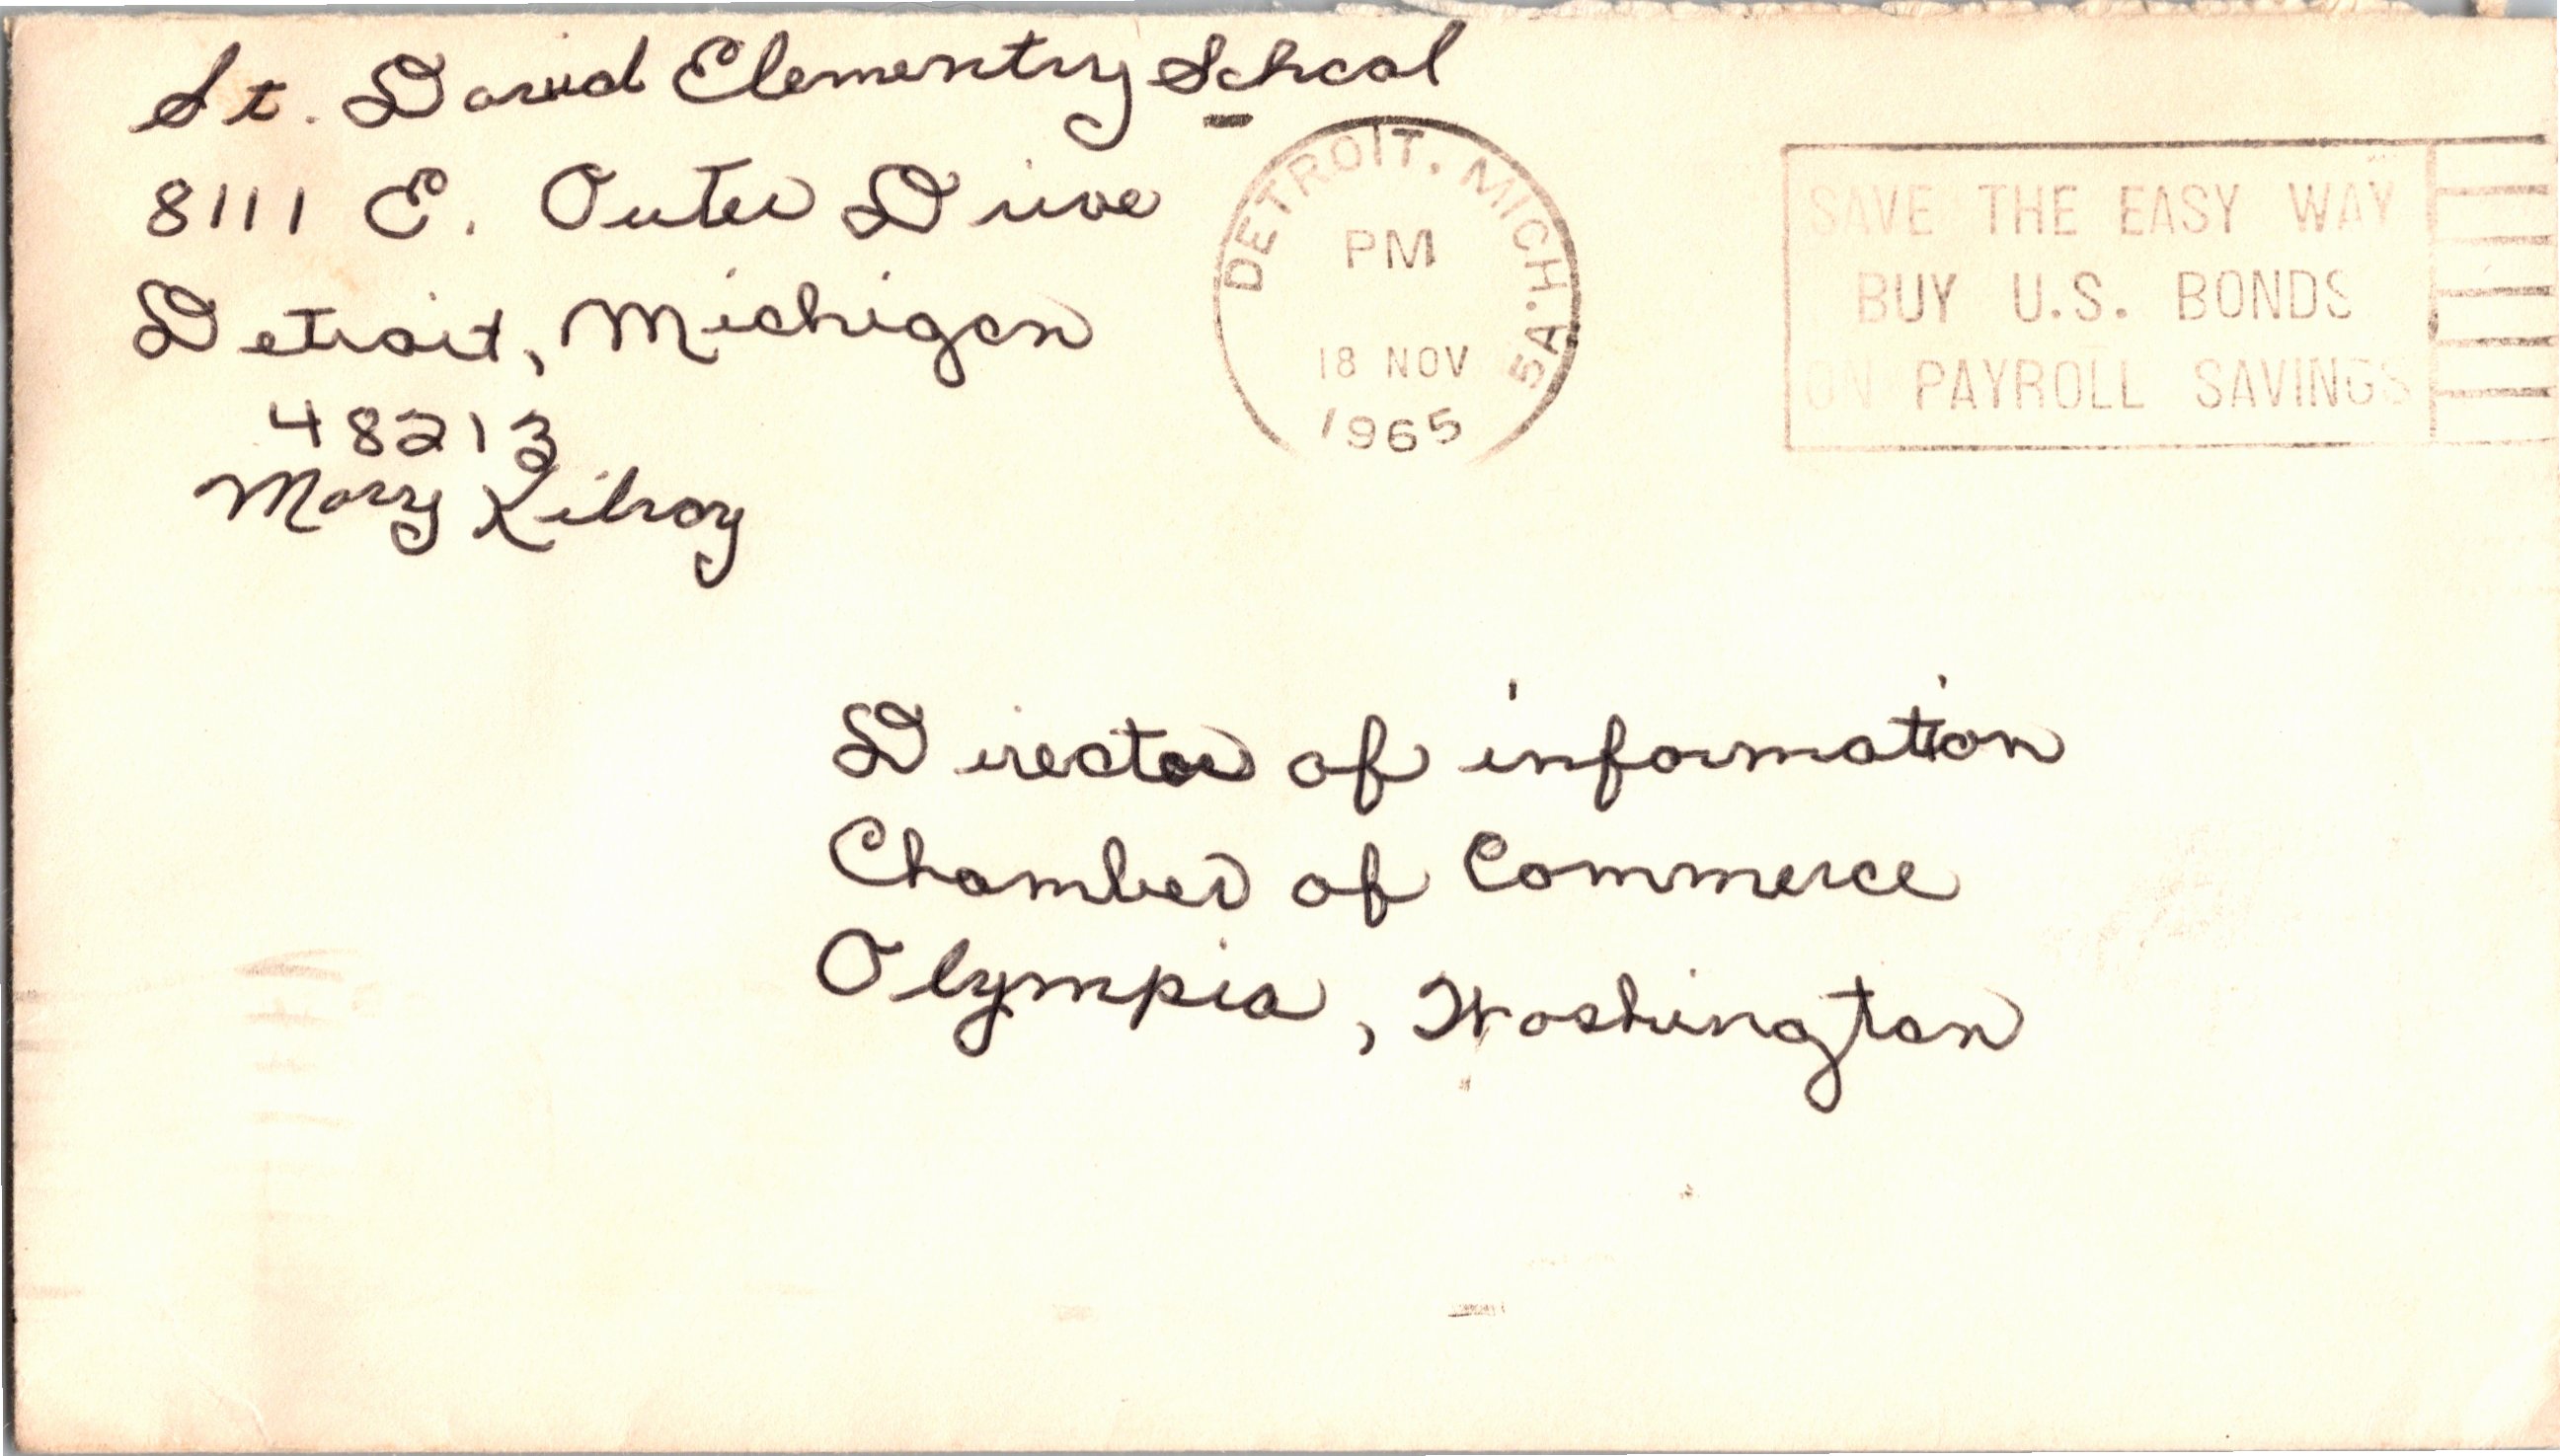 St. David Elementry School
8111 E. Outer Drive
Detroit, Michigan
48213
Mary Kilroy
DETROIT, MICH. 5A
PM
18 NOV
1965
SAVE THE EASY WAY
BUY U.S. BONDS
ON PAYROLL SAVINGS
Director of information
Chamber of Commerce
Olympia, Washington